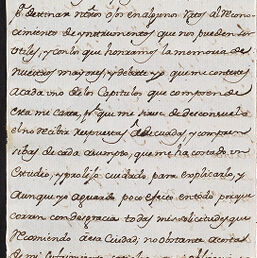 p.ª destinar nr̃os ojos en algunos ratos al recono-
cimiento de ynstrumentos que nos pueden ser
utiles, y con los que honramos la memoria de
nuestros mayores, y deberte yo que me contextes
a cada uno de los Capitulos que componen de
esta mi carta, p.r que me sirve de desconsuelo
el no recibir respuestas adecuadas, y compren
sibas de cada asumpto, que me ha costado un
Estudio, y prolijo cuidado para explicarlo, y
Aunque yo aguardo poco efecto en todo porque
corren con desgracia todas mis solicitudes que
Recomiendo a esa Ciudad, no obstante a costas
de mi